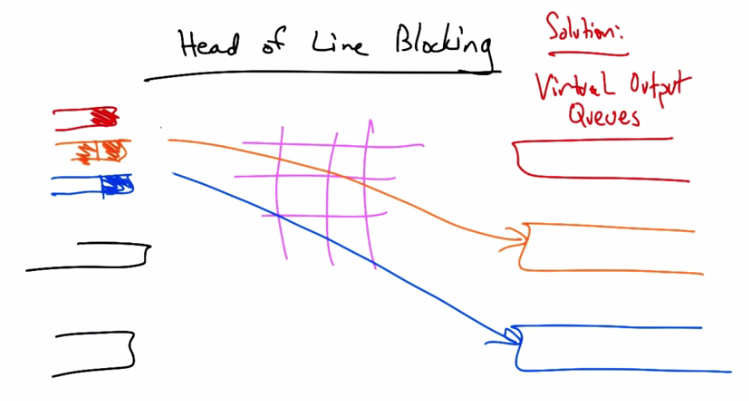 Head of Line Blocking
Solution:
Virtual Output
Queues